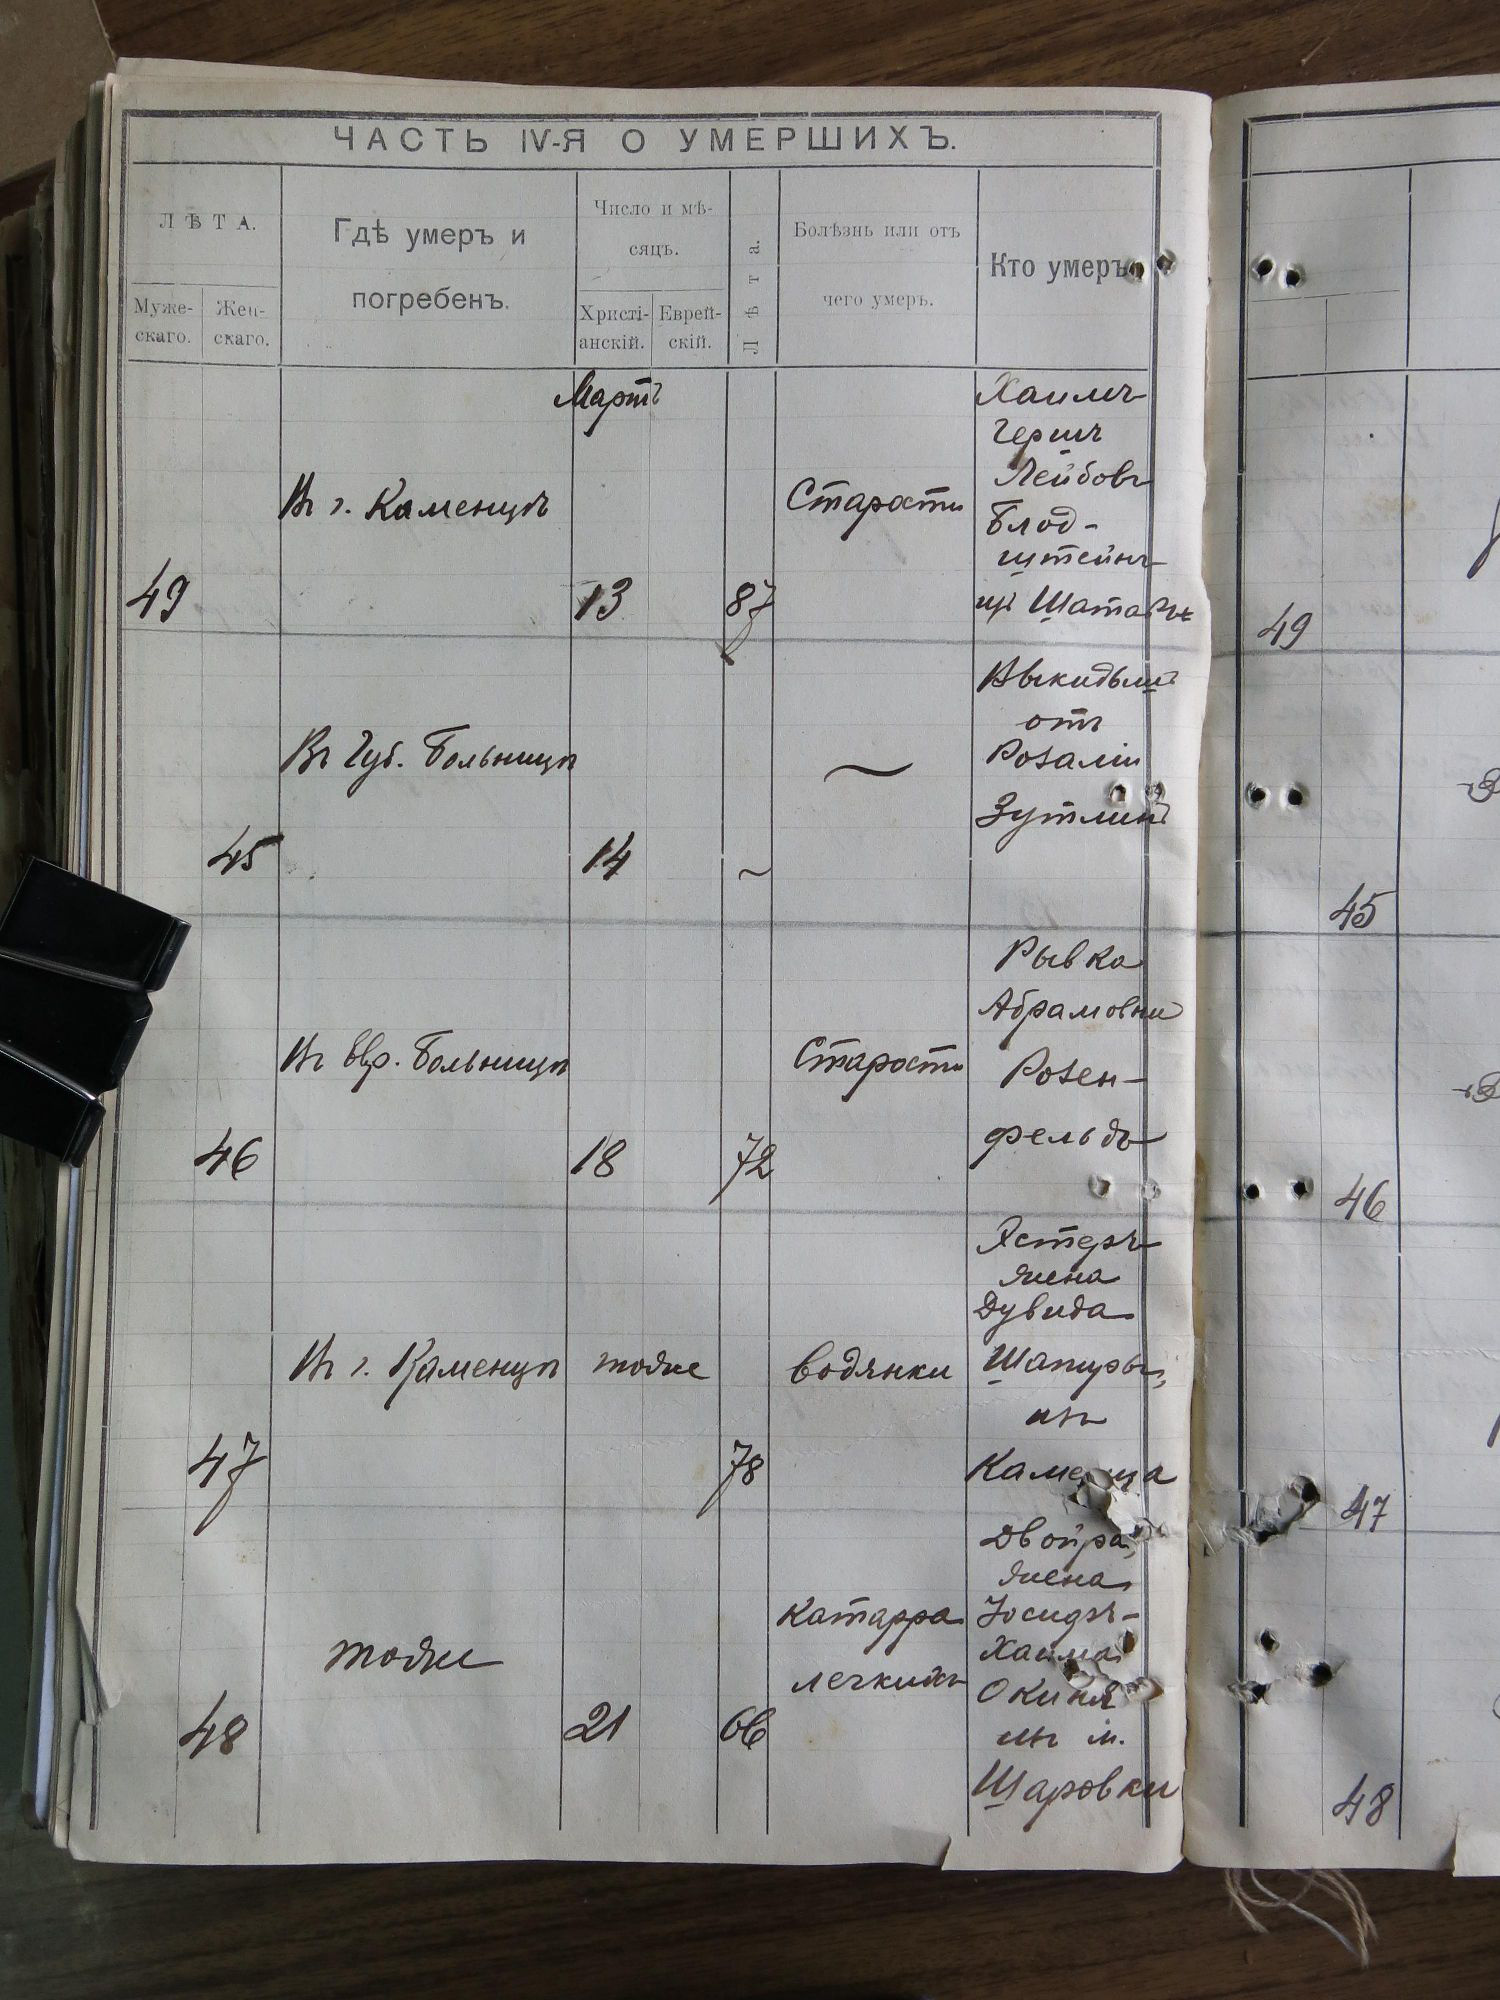 ЧАСТЬ IV-Я О УМЕРШИХЪ.
ЛѢТА.
Муже-
скаго.
Жен-
скаго.
Гдѣ умеръ и
погребенъ.
Число и мѣ-
сяцъ.
Христі-
анскій.
Еврей-
скій.
Лѣта.
Болѣзнь или отъ
чего умеръ.
Кто умеръ
Мартъ
49
Въ г. Каменцѣ
13
87
Старости
Хаимъ
Гершъ
Лейбовъ
Блод-
штейнъ
Шатавы
49
45
Въ Губ. Больницѣ
14
~
~
Выкидышъ
отъ
Розаліи
Зутлинъ
45
46
Въ Евр. Больницѣ
18
72
Старости
Рывка
Абрамовна
Розен-
фельдъ
46
47
Въ г. Каменцѣ
тоже
78
водянки
Эстеръ
жена
Дувида
Шапиры,
изъ
Каменца
47
48
тоже
21
66
катарра
легкихъ
Двойра,
жена
Іосифъ-
Хаима
изъ м.
Шаровки
48